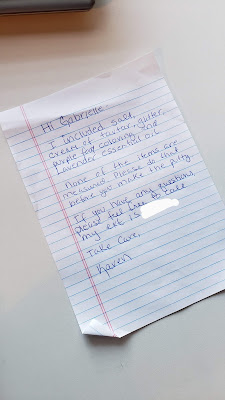 Hi Gabrielle -
I included salt,
cream of tartar, glitter,
purple food coloring and
lavender essential oil.
None of the items are
measured. Please do that
before you make the putty.
If you have any questions,
please feel free to
my ext. is
Take Care,
Karen